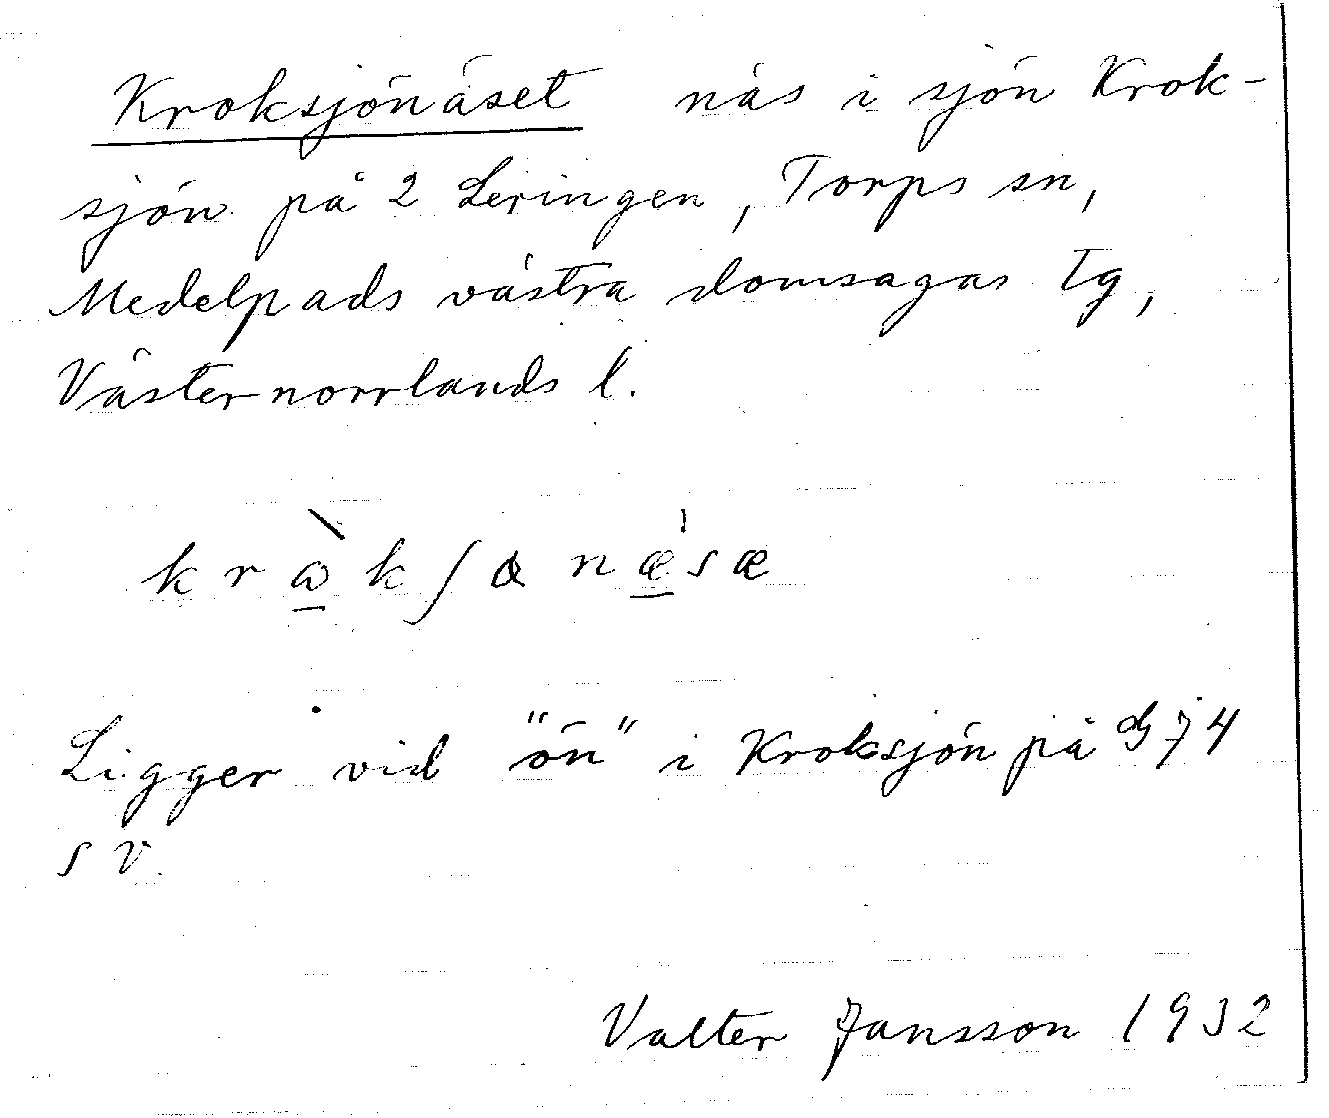 Kroksjönäset näs i sjön Krok-
sjön på 2 Leringen, Torps sn,
Medelpads västra domsagas tg,
Västernorrlands l.
Ligger vid "ön" i Kroksjön på
SV.
Valter Jansson 1932